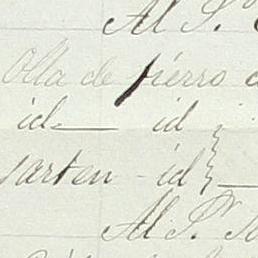 Al S.
Olla de fierro
id — id
sarten - id —
Al S.